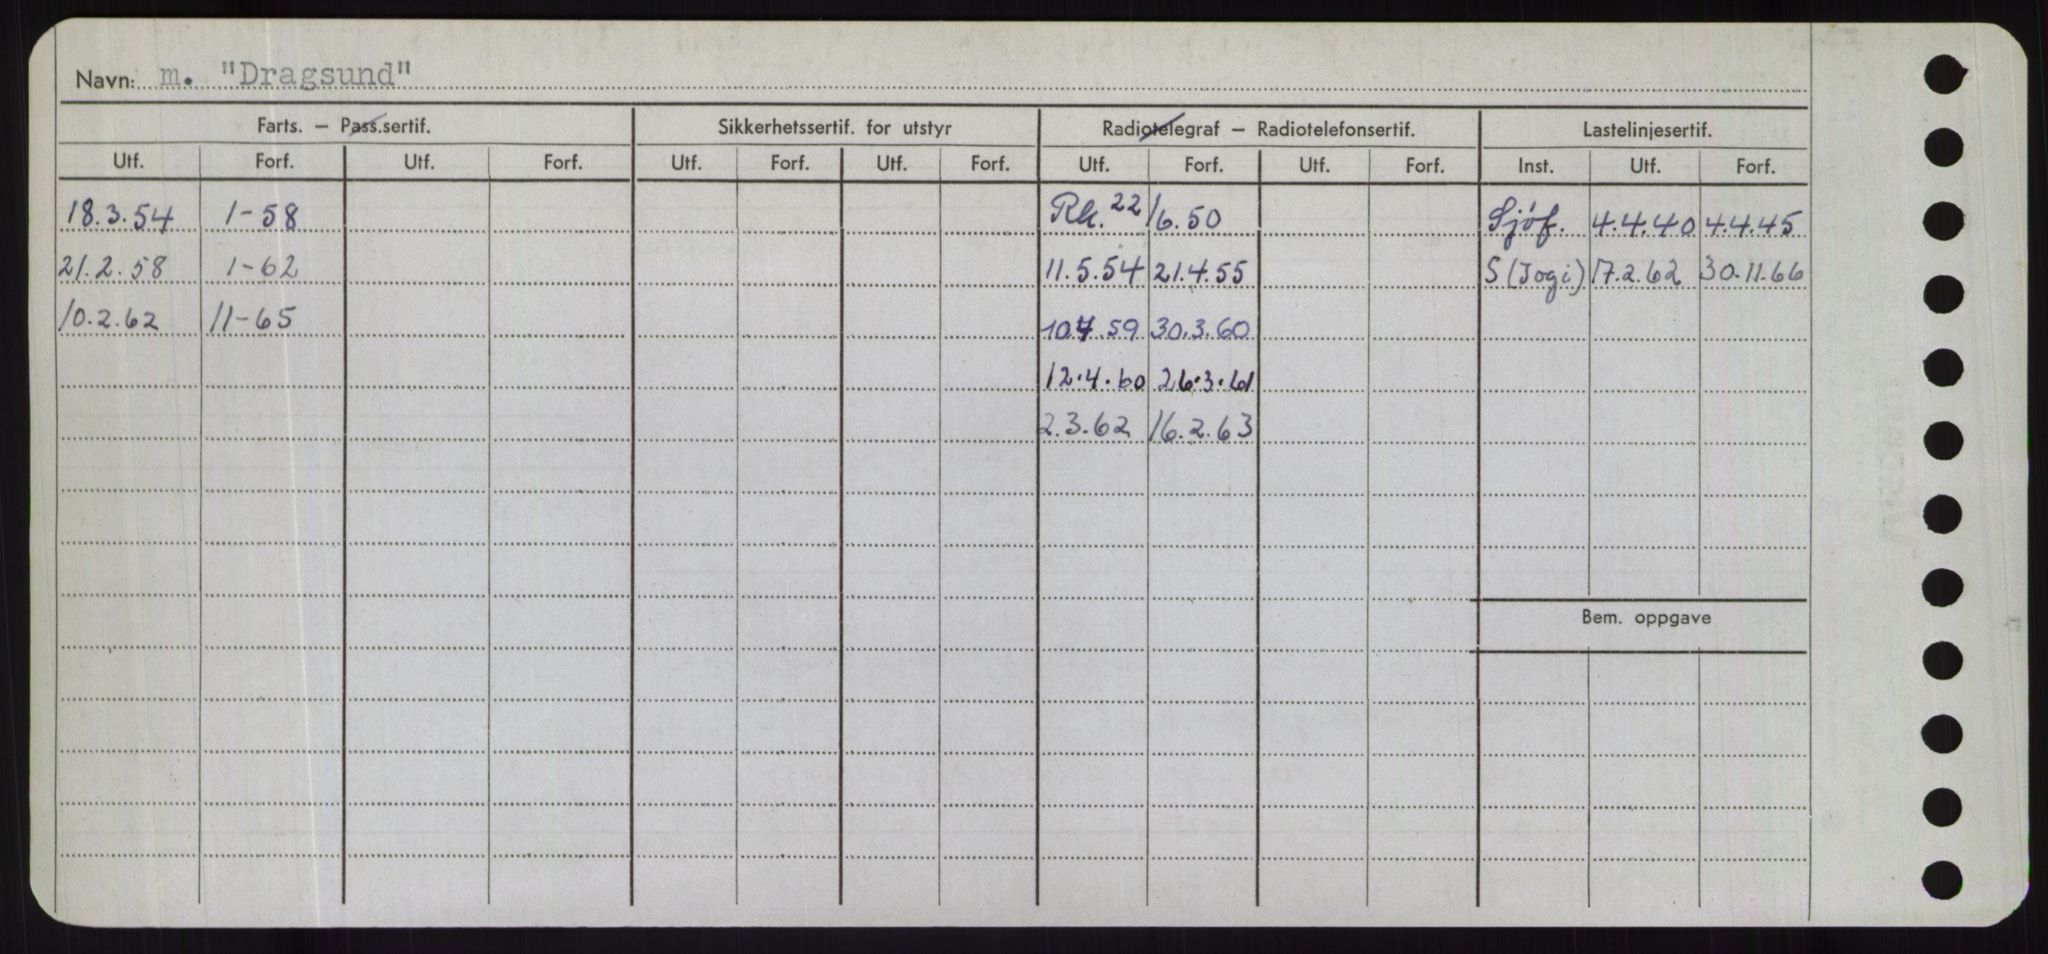 Navn: m. "Dragsund"
Farts. – Pass.sertif. Sikkerhetssertif. for utstyr Radiotelegraf – Radiotelefonsertif. Lastelinjesertif.
Utf. Forf. Utf. Forf. Utf. Forf. Utf. Forf. Utf. Forf. Utf. Forf. Inst. Utf. Forf.
18.3.54 1-58 Rk. 22/6.50 Sjöf. 4.4.40 4.4.45
21.2.58 1-62 11.5.54 21.4.55 S (Jogi) 17.2.62 30.11.66
10.2.62 11-65 10.4.59 30.3.60
12.4.60 26.3.61
2.3.62 16.2.63
Bem. oppgave